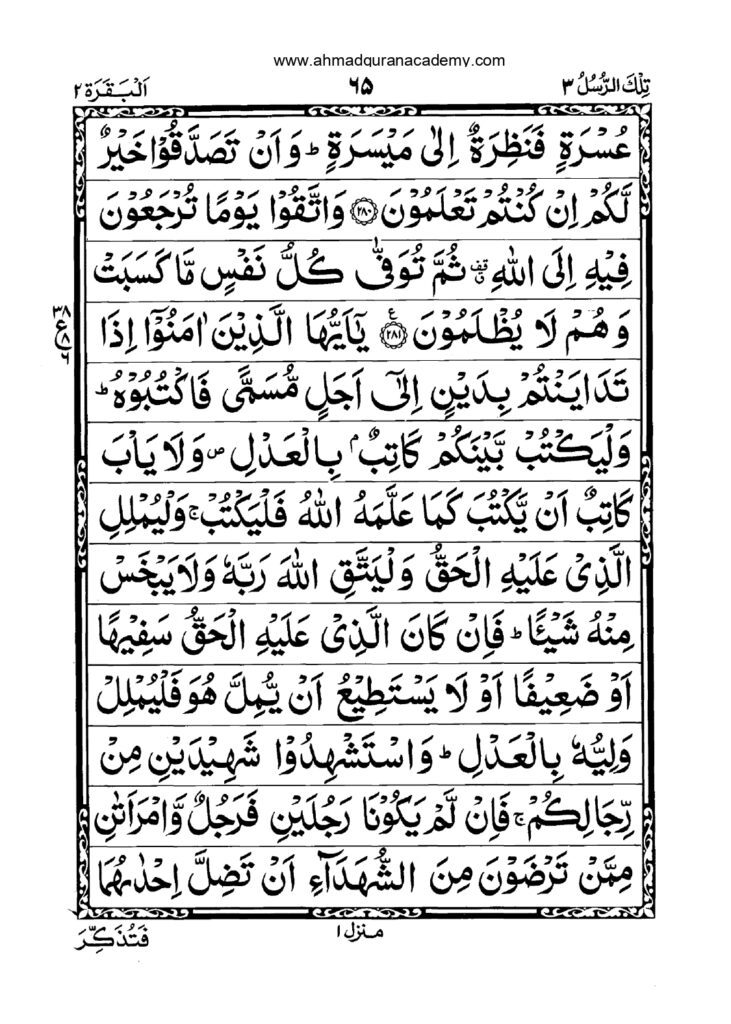 www.ahmadquranacademy.com
تِلْكَ الرُّسُلُ ٣
٦٥
اَلْبَقَرَة ٢
عُسْرَةٍ فَنَظِرَةٌ اِلٰى مَيْسَرَةٍ ؕ وَاَنْ تَصَدَّقُوْا خَيْرٌ
لَّكُمْ اِنْ كُنْتُمْ تَعْلَمُوْنَ ﴿۲۸۰﴾ وَاتَّقُوْا يَوْمًا تُرْجَعُوْنَ
فِيْهِ اِلَى اللّٰهِ ۗ ثُمَّ تُوَفّٰى كُلُّ نَفْسٍ مَّا كَسَبَتْ
وَهُمْ لَا يُظْلَمُوْنَ ﴿۲۸۱﴾ ع يٰۤاَيُّهَا الَّذِيْنَ اٰمَنُوْۤا اِذَا
٣٨
ع
٨
٦
تَدَايَنْتُمْ بِدَيْنٍ اِلٰۤى اَجَلٍ مُّسَمًّى فَاكْتُبُوْهُ ؕ
وَلْيَكْتُبْ بَّيْنَكُمْ كَاتِبٌۢ بِالْعَدْلِ ۪ وَلَا يَاْبَ
كَاتِبٌ اَنْ يَّكْتُبَ كَمَا عَلَّمَهُ اللّٰهُ فَلْيَكْتُبْ ۚ وَلْيُمْلِلِ
الَّذِيْ عَلَيْهِ الْحَقُّ وَلْيَتَّقِ اللّٰهَ رَبَّهٗ وَلَا يَبْخَسْ
مِنْهُ شَيْـًٔا ؕ فَاِنْ كَانَ الَّذِيْ عَلَيْهِ الْحَقُّ سَفِيْهًا
اَوْ ضَعِيْفًا اَوْ لَا يَسْتَطِيْعُ اَنْ يُّمِلَّ هُوَ فَلْيُمْلِلْ
وَلِيُّهٗ بِالْعَدْلِ ؕ وَاسْتَشْهِدُوْا شَهِيْدَيْنِ مِنْ
رِّجَالِكُمْ ۚ فَاِنْ لَّمْ يَكُوْنَا رَجُلَيْنِ فَرَجُلٌ وَّامْرَاَتٰنِ
مِمَّنْ تَرْضَوْنَ مِنَ الشُّهَدَآءِ اَنْ تَضِلَّ اِحْدٰىهُمَا
منزل ١
فَتُذَكِّرَ